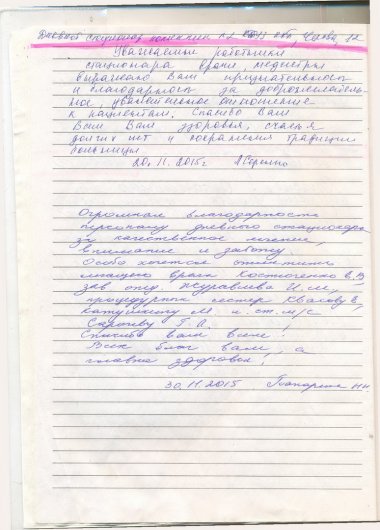 Дневной стационар
Уважаемые работники
стационара врачи, медсестры
выражаю Вам признательность
и благодарность за доброжелатель-
ное, уважительное отношение
к пациентам. Спасибо Вам
Всем Вам здоровья, счастья
долгих лет и сохранения традиции
больницы
20. 11. 2015г
Огромная благодарность
персоналу дневного стационара
за качественное лечение,
внимание и заботу
Особо хочется отметить
врача Костюченко
зав отд. Журавлева И. М.,
процедурных сестер
М и ст. м/с
Г. А.
Спасибо вам всем!
Всех благ вам, а
главное здоровья!
30. 11. 2015